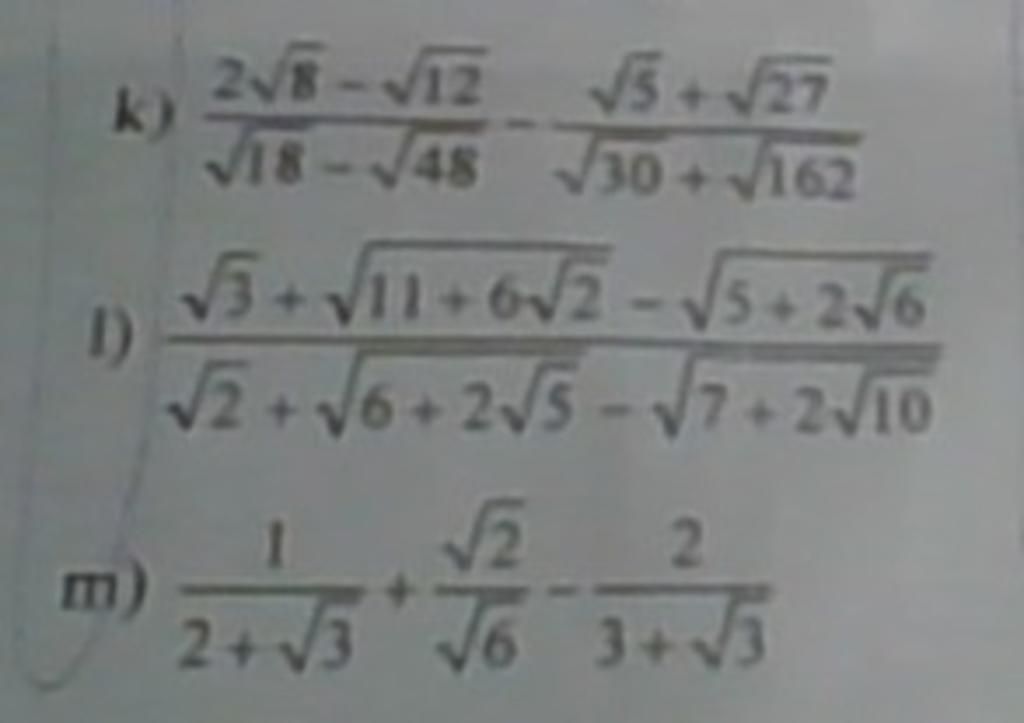 k) \frac{2\sqrt{8} - \sqrt{12}}{\sqrt{18} - \sqrt{48}} - \frac{\sqrt{5} + \sqrt{27}}{\sqrt{30} + \sqrt{162}}
l) \frac{\sqrt{3} + \sqrt{11 + 6\sqrt{2}} - \sqrt{5 + 2\sqrt{6}}}{\sqrt{2} + \sqrt{6 + 2\sqrt{5}} - \sqrt{7 + 2\sqrt{10}}}
m) \frac{1}{2 + \sqrt{3}} + \frac{\sqrt{2}}{\sqrt{6}} - \frac{2}{3 + \sqrt{3}}